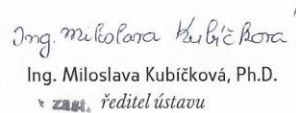 Ing. Miloslava Kubíčková
Ing. Miloslava Kubíčková, Ph.D.
v zast. ředitel ústavu